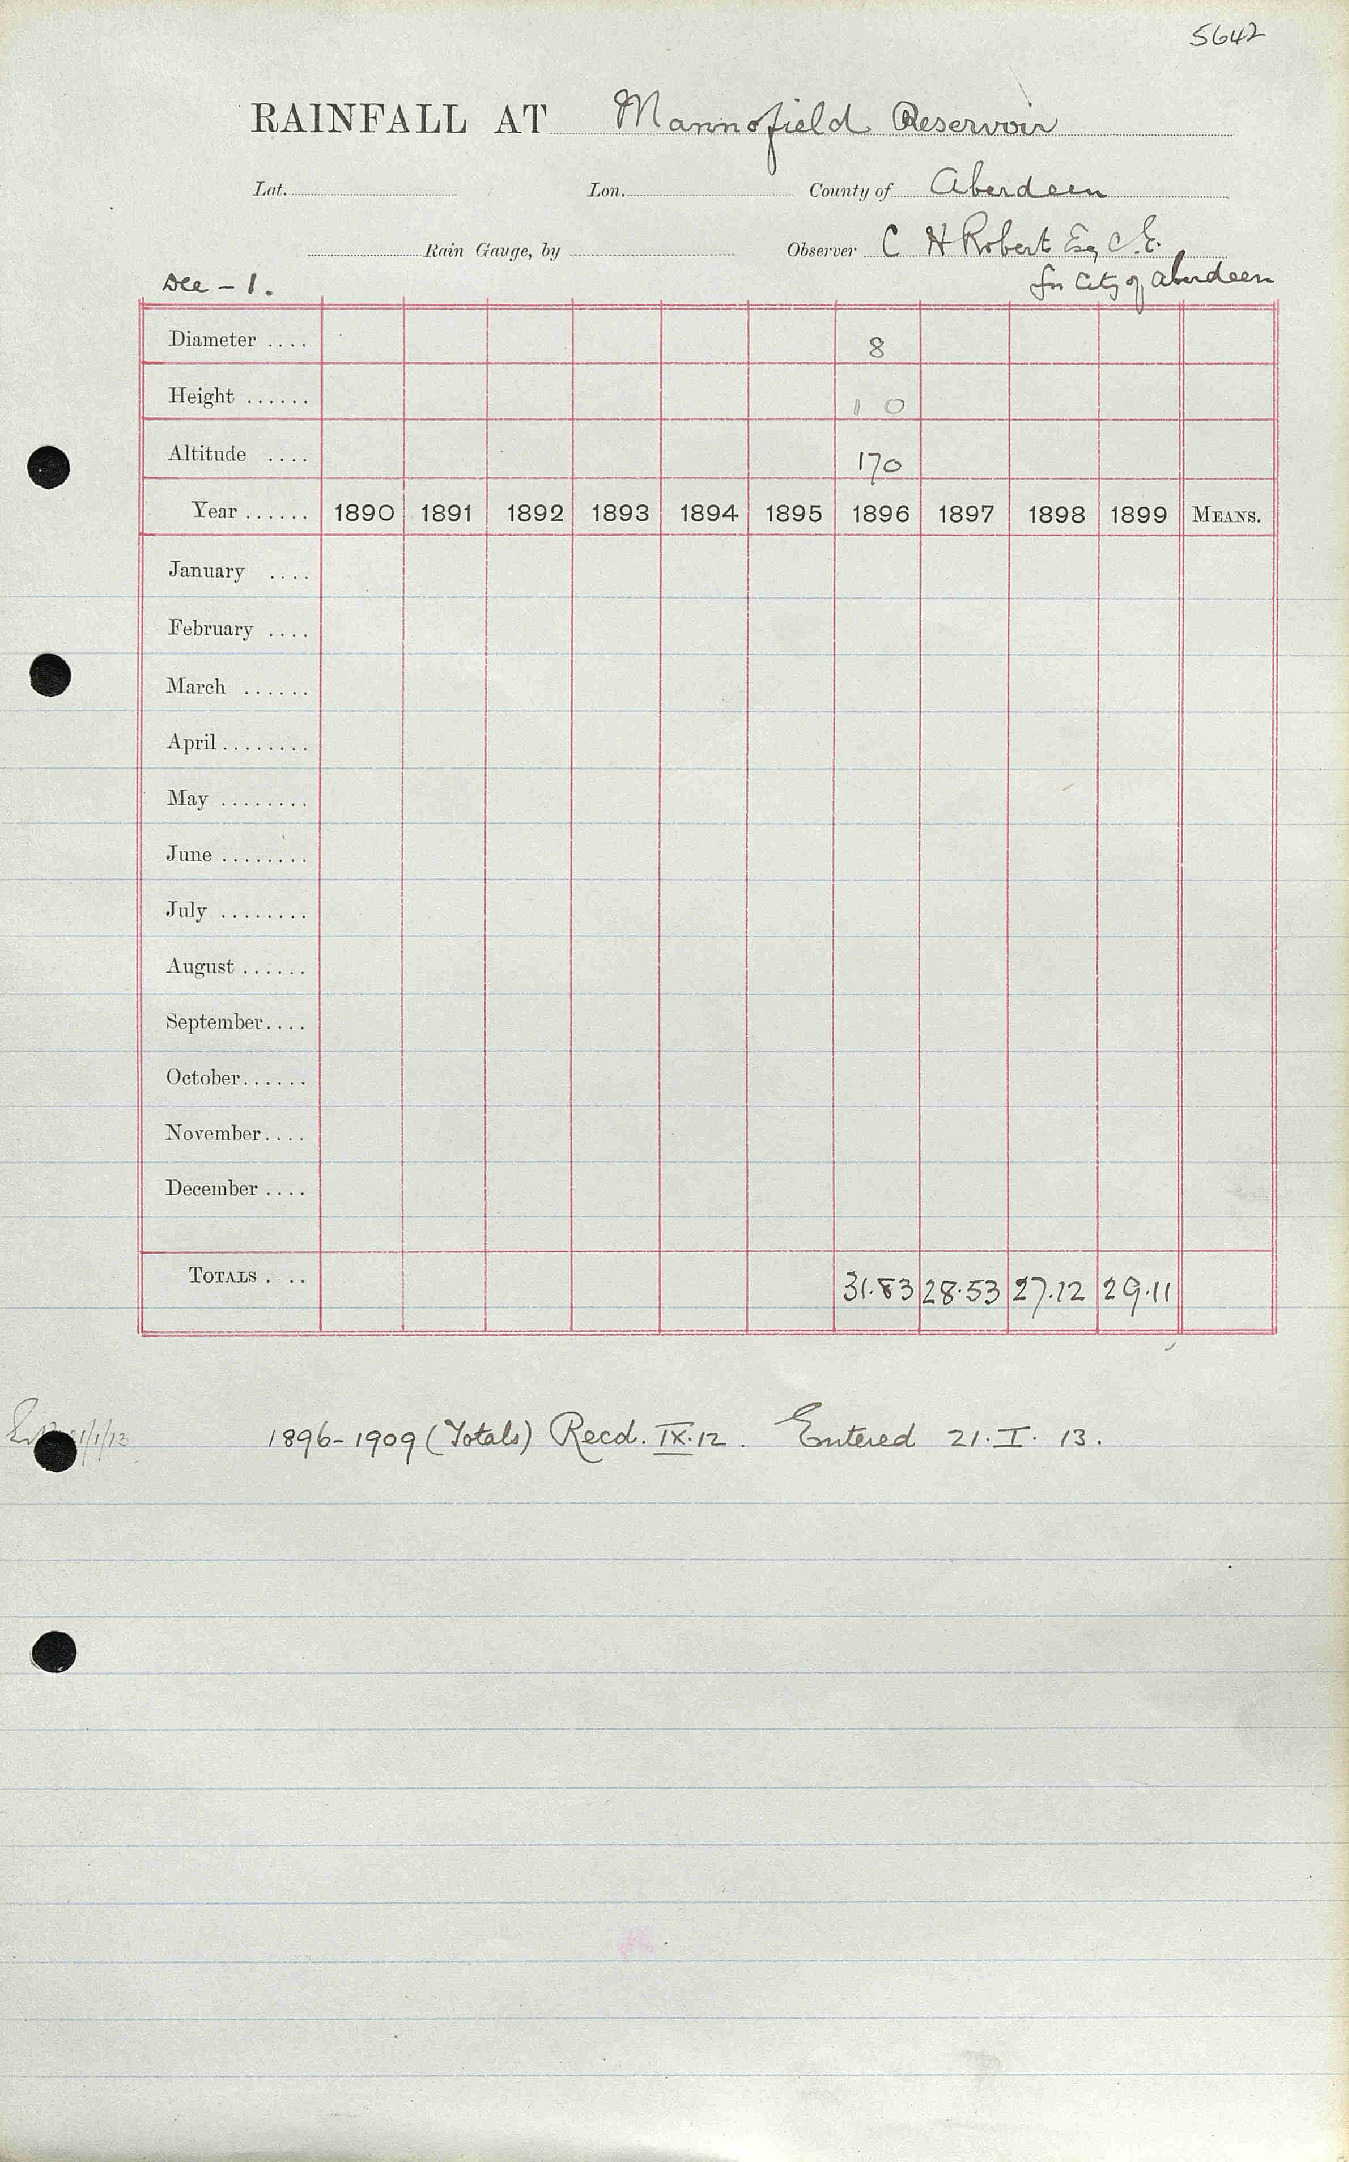 5642
RAINFALL AT Mannofield Reservoir
Lat. Lon. County of Aberdeen
Rain Gauge, by Observer C H Robert Esq C.E.
Dec - 1. for City of Aberdeen
Diameter .... 8
Height ...... 1 0
Altitude .... 170
Year ...... 1890 1891 1892 1893 1894 1895 1896 1897 1898 1899 MEANS.
January ....
February ....
March ......
April ........
May ........
June ........
July ........
August ......
September ....
October ......
November ....
December ....
TOTALS . .. 31.83 28.53 27.12 29.11
1896-1909 (Totals) Recd. IX.12. Entered 21.I.13.
21/1/13